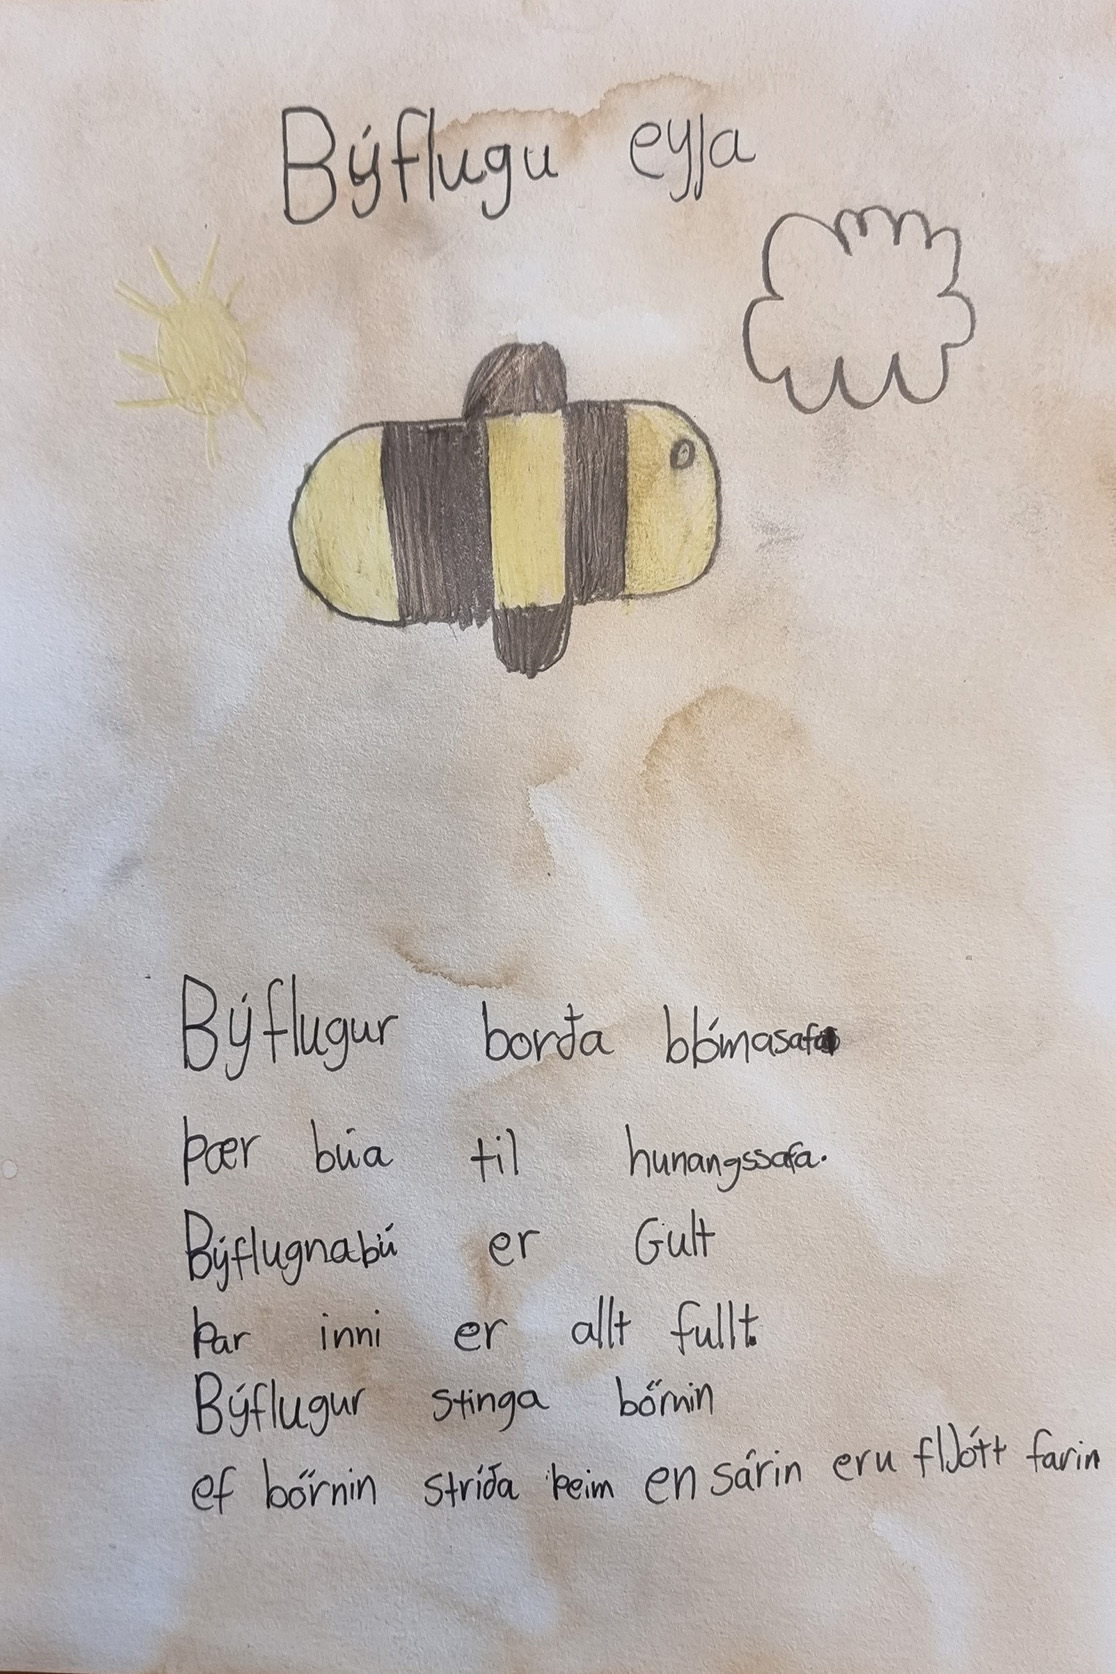 Býflugu eyja
Býflugur borða blómasafa
þær búa til hunangssafa.
Býflugnabú er Gult
þar inni er allt fullt.
Býflugur stinga börnin
ef börnin stríða þeim en sárin eru fljótt farin